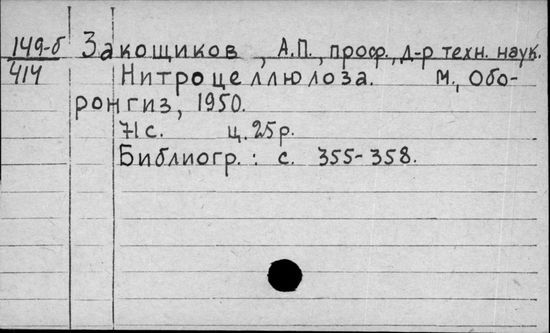 149-б Закощиков, А.П., проф., д-р техн. наук.
414 Нитроцеллюлоза. М., Обо-
ронгиз, 1950.
71 с. ц. 25 р.
Библиогр.: с. 355-358.